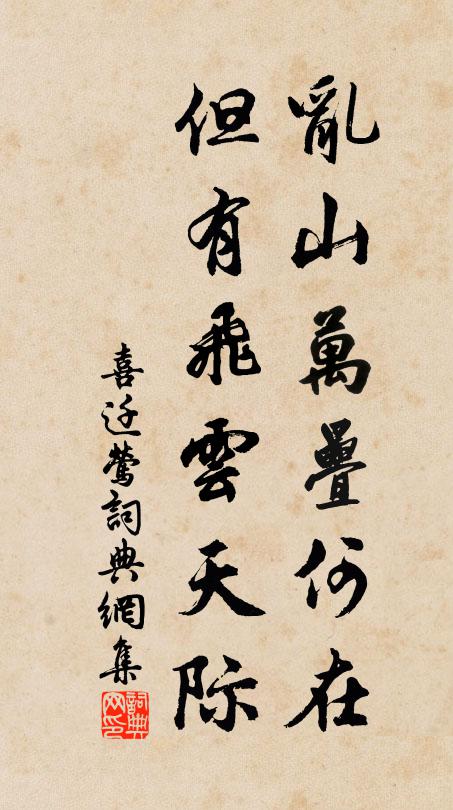 亂山萬疊何在
但有飛雲天際
喜迁鶯詞典網集
詞典网印